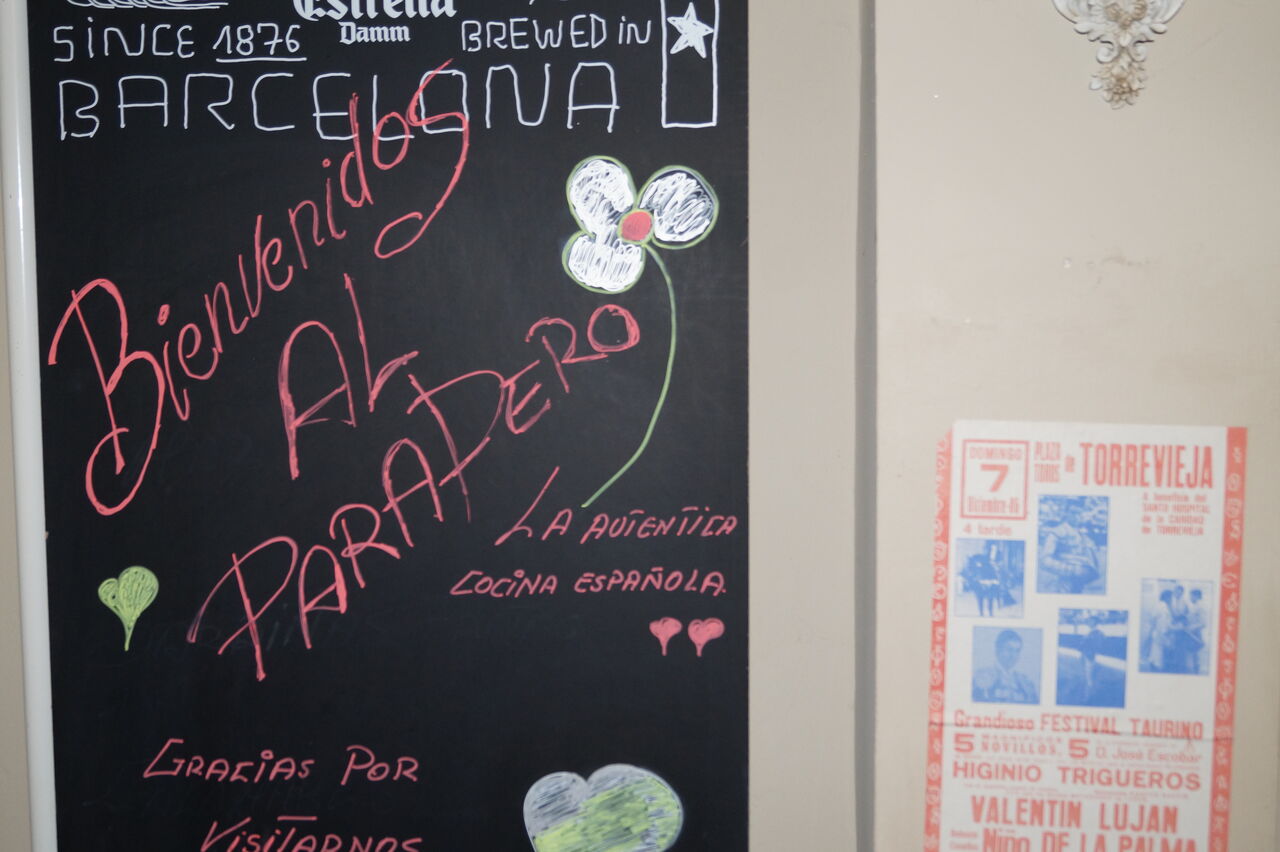 Estrella
Damm
SINCE 1876
BREWED IN
BARCELONA
Bienvenidos
AL
PARADERO
LA AUTENTICA
COCINA ESPAÑOLA.
GRACIAS POR
VISITARNOS
DOMINGO
7
Diciembre-86
4 tarde
PLAZA
TOROS
de TORREVIEJA
A beneficio del
SANTO HOSPITAL
de la CARIDAD
de TORREVIEJA
Grandioso FESTIVAL TAURINO
5 NOVILLOS, 5 D. José Escobar
HIGINIO TRIGUEROS
VALENTIN LUJAN
Niño DE LA PALMA